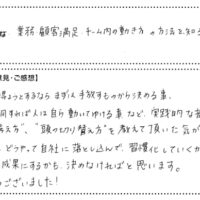 な 業務 顧客満足 チーム内の動き方 の方法を知る
見・ご感想】
得ようとするなら まず人 手放すものから決める事、
同すれば人は自ら動いてゆける事 など、実践的な
え方"、"頭の切り替え方"を教えて頂いた気が
どうやって自社に落とし込んで、習慣化していくか
成果にするかも 決めなければと思います。
ございました!